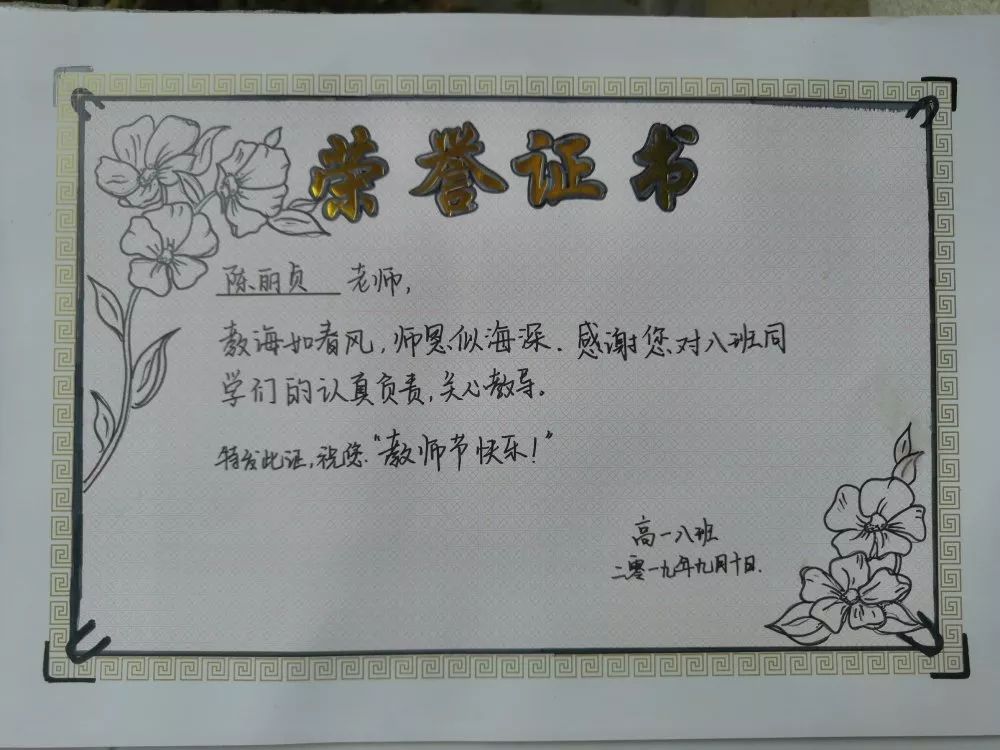 荣誉证书
陈丽贞 老师,
教海如春风,师恩似海深.感谢您对八班同
学们的认真负责,关心教导。
特发此证,祝您“教师节快乐!”
高一八班
二零一九年九月十日.